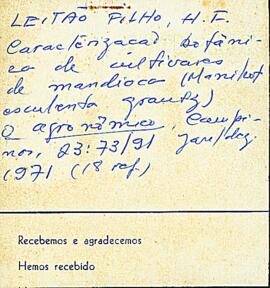 LEITÃO FILHO, H. F.
Caracterizacaõ botâni-
ca de cultivares
de mandioca (Manihot
esculenta grantz)
O agronômico, Campi-
nas, 23:73/91 jan/dez.
1971 (18 ref.)
Recebemos e agradecemos
Hemos recibido